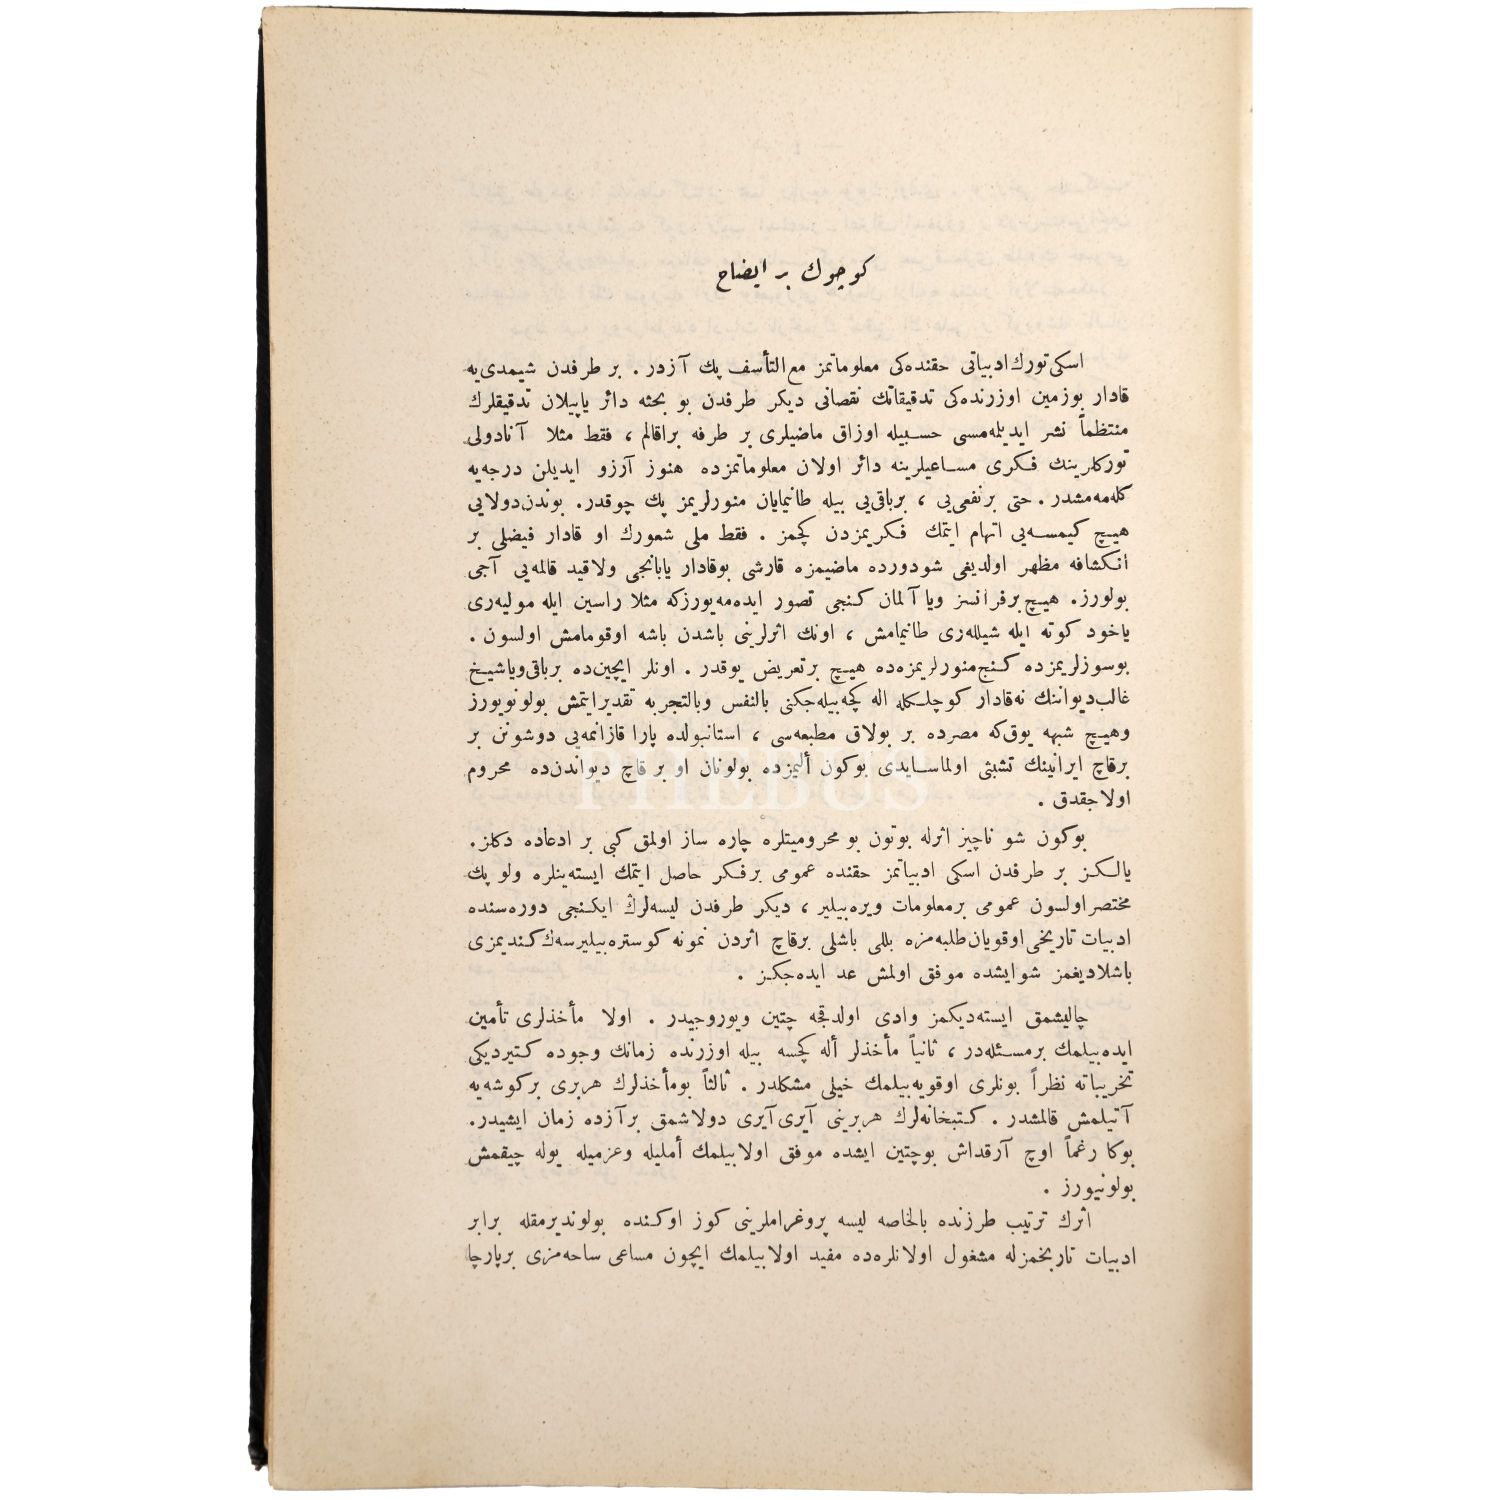 كوچوك بر ايضاح
اسكی تورك ادبياتی حقنده‌كی معلوماتمز مع التأسف پك آزدر . بر طرفدن شيمدی‌يه
قادار بوزمين اوزرنده‌كی تدقيقاتك نقصانی ديكر طرفدن بو بحثه دائر ياپيلان تدقيقلرك
منتظماً نشر ايديلمه‌مسی حسبيله اوزاق ماضيلری بر طرفه براقالم ، فقط مثلا آنادولی
توركلرينك فكری مساعيلرينه دائر اولان معلوماتمزده هنوز آرزو ايديلن درجه‌يه
كله‌مه‌مشدر . حتی برنفعی‌يی ، برباقی‌يی بيله طانيمايان منورلريمز پك چوقدر . بوندن‌دولايی
هيچ كيمسه‌يی اتهام ايتمك فكريمزدن كچمز . فقط ملی شعورك او قادار فيضلی بر
انكشافه مظهر اولديغی شودورده ماضيمزه قارشی بوقادار يابانجی ولاقيد قالمه‌يی آجی
بولورز . هيچ برفرانسز ويا آلمان كنجی تصور ايده‌مه‌يورزكه مثلا راسين ايله موليه‌ری
ياخود كوته ايله شيلله‌ری طانيمامش ، اونك اثرلرينی باشدن باشه اوقومامش اولسون .
بوسوزلريمزده كنج منورلريمزه‌ده هيچ برتعريض يوقدر . اونلر ايچين‌ده برباقی‌ويا شيخ
غالب ديواننك نه‌قادار كوچلكله اله كچه‌بيله‌جكنی بالنفس وبالتجربه تقدير ايتمش بولونويورز
وهيچ شبهه يوق‌كه مصرده بر بولاق مطبعه‌سی ، استانبولده پارا قازانمه‌يی دوشونن بر
برقاچ ايرانينك تشبثی اولماسايدی بوكون أليمزده بولونان او بر قاچ ديواندن‌ده محروم
اولاجقدق .
بوكون شو ناچيز اثرله بوتون بو محروميتلره چاره ساز اولمق كبی بر ادعاده دكلز .
يالكز بر طرفدن اسكی ادبياتمز حقنده عمومی برفكر حاصل ايتمك ايسته‌ينلره ولو پك
مختصر اولسون عمومی برمعلومات ويره‌بيلير ، ديكر طرفدن ليسه‌لرڭ ايكنجی دوره‌سنده
ادبيات تاريخی اوقويان طلبه‌مزه بللی باشلی برقاچ اثردن نمونه كوستره‌بيليرسه‌ك كنديمزی
باشلاديغمز شوايشده موفق اولمش عد ايده‌جكز .
چاليشمق ايسته‌ديكمز وادی اولدقجه چتين ويوروجيدر . اولا مأخذلری تأمين
ايده‌بيلمك برمسئله‌در ، ثانياً مأخذلر أله كچسه بيله اوزرنده زمانك وجوده كتيرديكی
تخريباته نظراً بونلری اوقويه‌بيلمك خيلی مشكلدر . ثالثاً بومأخذلرك هربری بركوشه‌يه
آتيلمش قالمشدر . كتبخانه‌لرك هربرينی آيری آيری دولاشمق برآزده زمان ايشيدر .
بوكا رغماً اوچ آرقداش بوچتين ايشده موفق اولابيلمك أمليله وعزميله يوله چيقمش
بولونيورز .
اثرك ترتيب طرزنده بالخاصه ليسه پروغراملرينی كوز اوكنده بولونديرمقله برابر
ادبيات تاريخمزله مشغول اولانلره‌ده مفيد اولابيلمك ايچون مساعی ساحه‌مزی برپارچا
PHEBUS